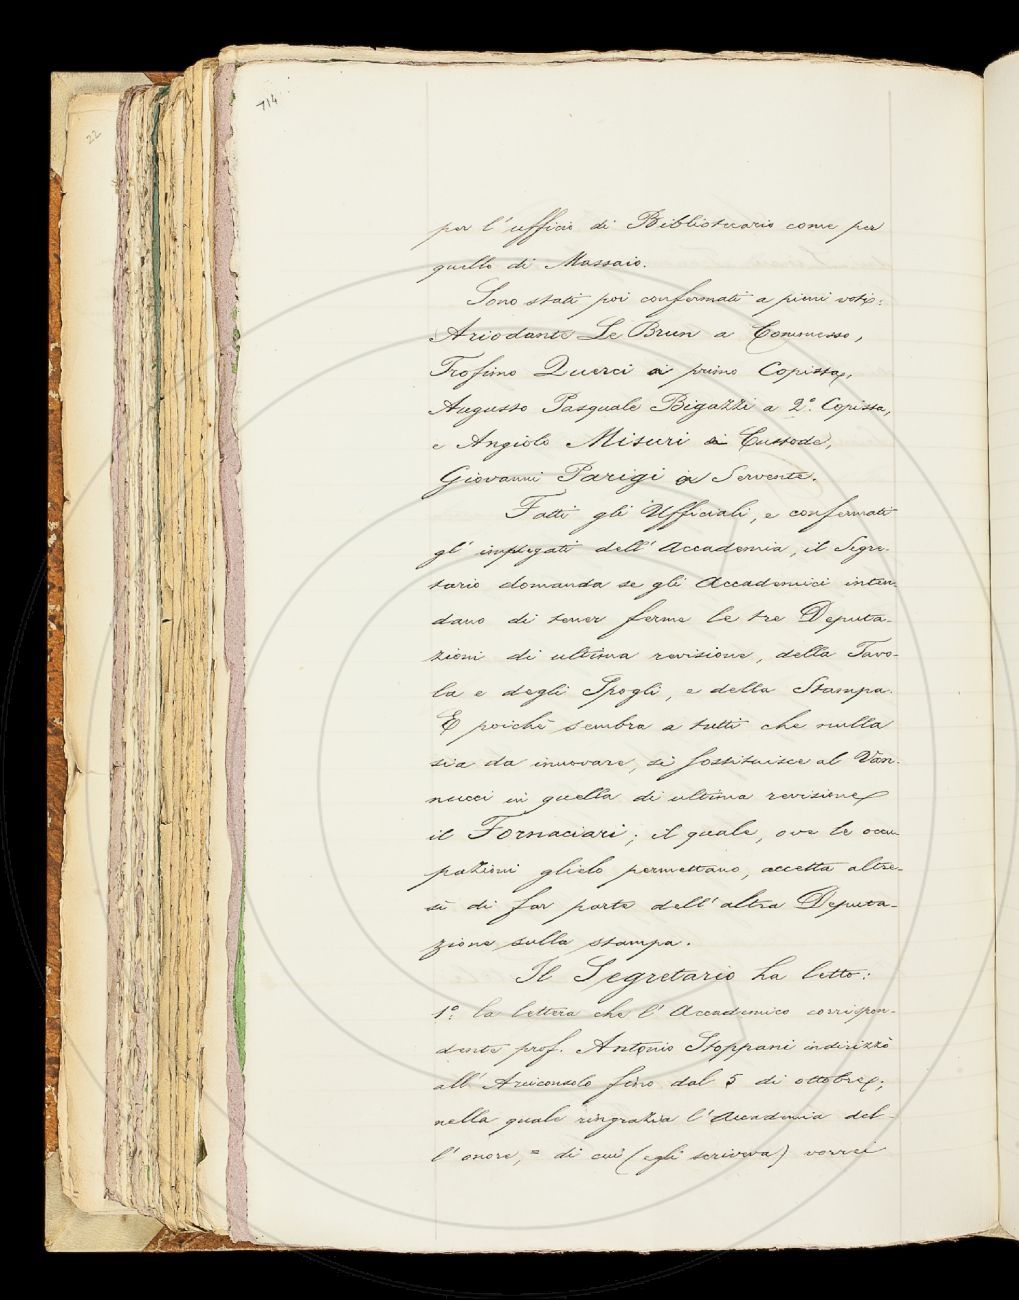 714
22
per l'ufficio di Bibliotecario come per
quello di Massaio.
Sono stati poi confermati a pieni voti:
Ariodante Le Brun a Commesso,
Trofimo Querci a primo Copista,
Augusto Pasquale Bigazzi a 2º. Copista,
e Angiolo Misuri a Custode,
Giovanni Parigi a Servente.
Fatti gli Ufficiali, e confermati
gl'impiegati dell'Accademia, il Segre-
tario domanda se gli Accademici inten-
dano di tener ferme le tre Deputa-
zioni di ultima revisione, della Tavo-
la e degli Spogli, e della Stampa.
E poichè sembra a tutti che nulla
sia da innovare, si sostituisce al Van-
nucci in quella di ultima revisione
il Fornaciari; il quale, ove le occu-
pazioni glielo permettano, accetta altre-
sì di far parte dell'altra Deputa-
zione sulla stampa.
Il Segretario ha letto:
1º. la lettera che l'Accademico corrispon-
dente prof. Antonio Stoppani indirizzò
all'Arciconsolo fino dal 5 di ottobre;
nella quale ringrazia l'Accademia del-
l'onore, = di cui (egli scriveva) vorrei